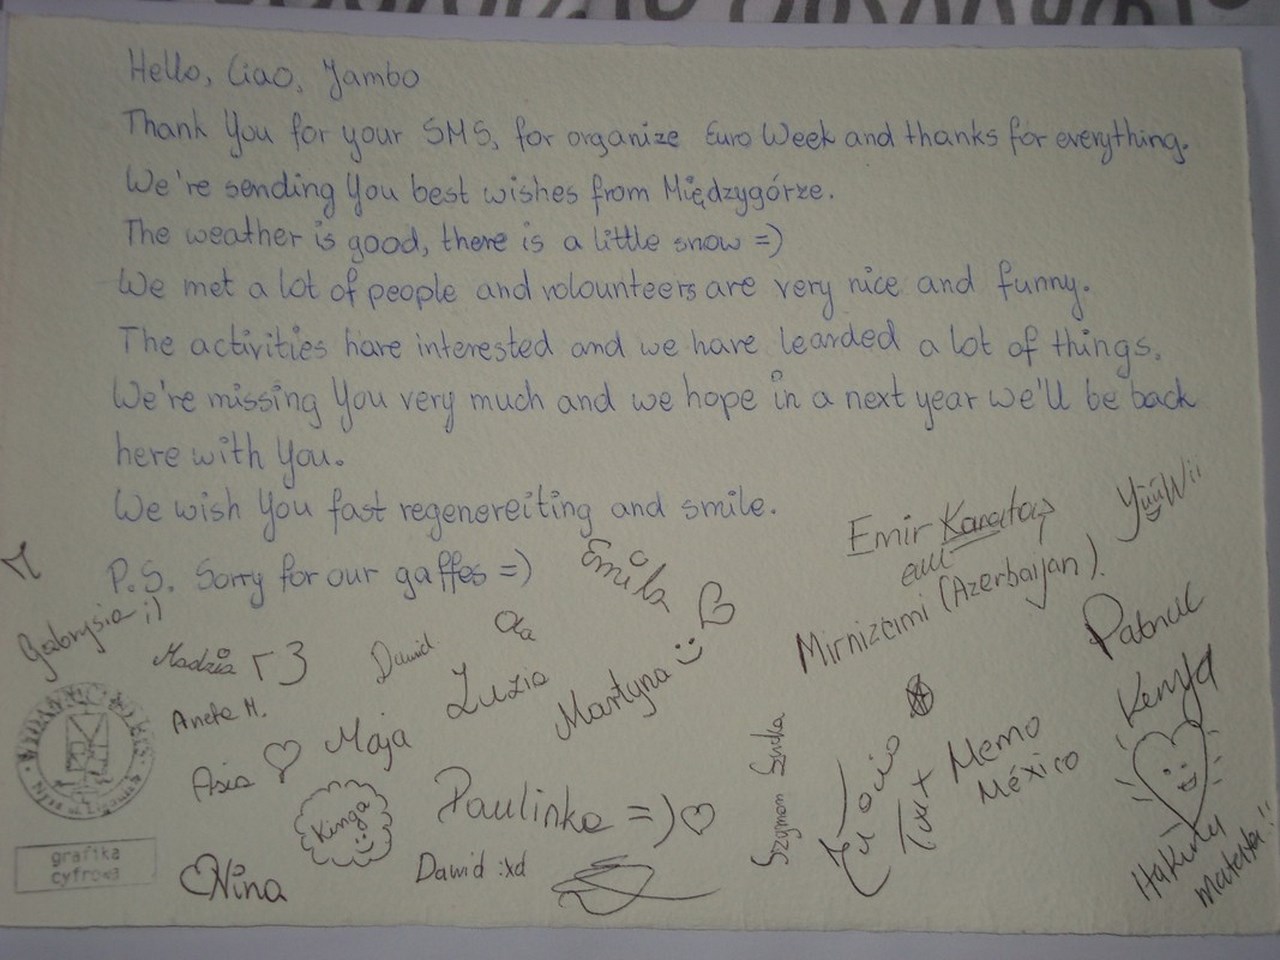 Hello, Ciao, Jambo
Thank You for your SMS, for organize Euro Week and thanks for everything.
We're sending You best wishes from Międzygórze.
The weather is good, there is a little snow =)
We met a lot of people and volounteers are very nice and funny.
The activities have interested and we have learded a lot of things.
We're missing You very much and we hope in a next year we'll be back
here with You.
We wish You fast regenereiting and smile.
P.S. Sorry for our gaffes =)
Emilka
Emir
YüüWii
Mirnizami (Azerbaijan).
Gabrysia ;)
Madzia
Dawid
Ola
Luzia
Martyna :)
Patrick
Kenya
Aneta M.
Asia
Maja
Kinga
Paulinka =)
Szymon
Memo
México
Nina
Dawid :xd
Hakuna
matata!!
grafika
cyfrowa